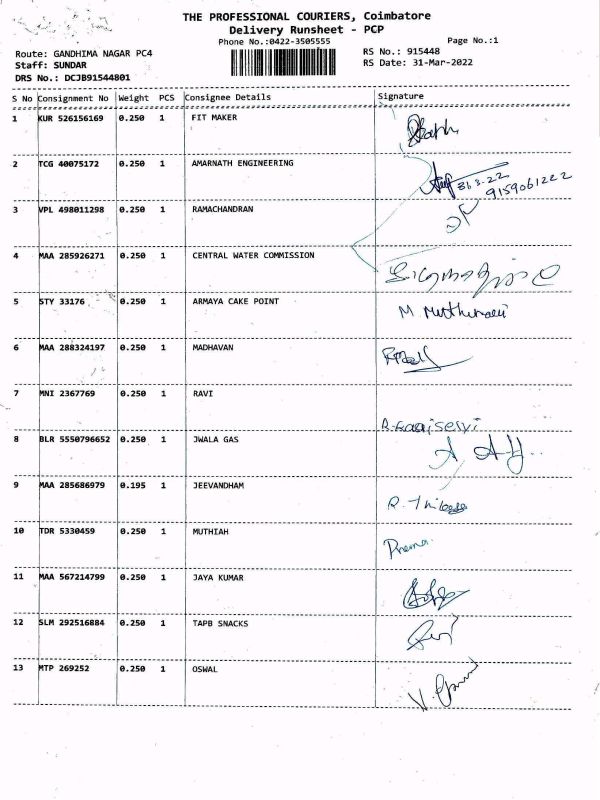 THE PROFESSIONAL COURIERS, Coimbatore
Delivery Runsheet - PCP
Phone No.:0422-3505555
Page No.:1
Route: GANDHIMA NAGAR PC4
RS No.: 915448
Staff: SUNDAR
RS Date: 31-Mar-2022
DRS No.: DCJB91544801
S No Consignment No Weight PCS Consignee Details Signature
1 KUR 526156169 0.250 1 FIT MAKER
2 TCG 40075172 0.250 1 AMARNATH ENGINEERING
9159061222
3 VPL 498011298 0.250 1 RAMACHANDRAN
4 MAA 285926271 0.250 1 CENTRAL WATER COMMISSION
5 STY 33176 0.250 1 ARMAYA CAKE POINT
6 MAA 288324197 0.250 1 MADHAVAN
7 MNI 2367769 0.250 1 RAVI
8 BLR 5550796652 0.250 1 JWALA GAS
9 MAA 285686979 0.195 1 JEEVANDHAM
10 TDR 5330459 0.250 1 MUTHIAH
Prema
11 MAA 567214799 0.250 1 JAYA KUMAR
12 SLM 292516884 0.250 1 TAPB SNACKS
13 MTP 269252 0.250 1 OSWAL